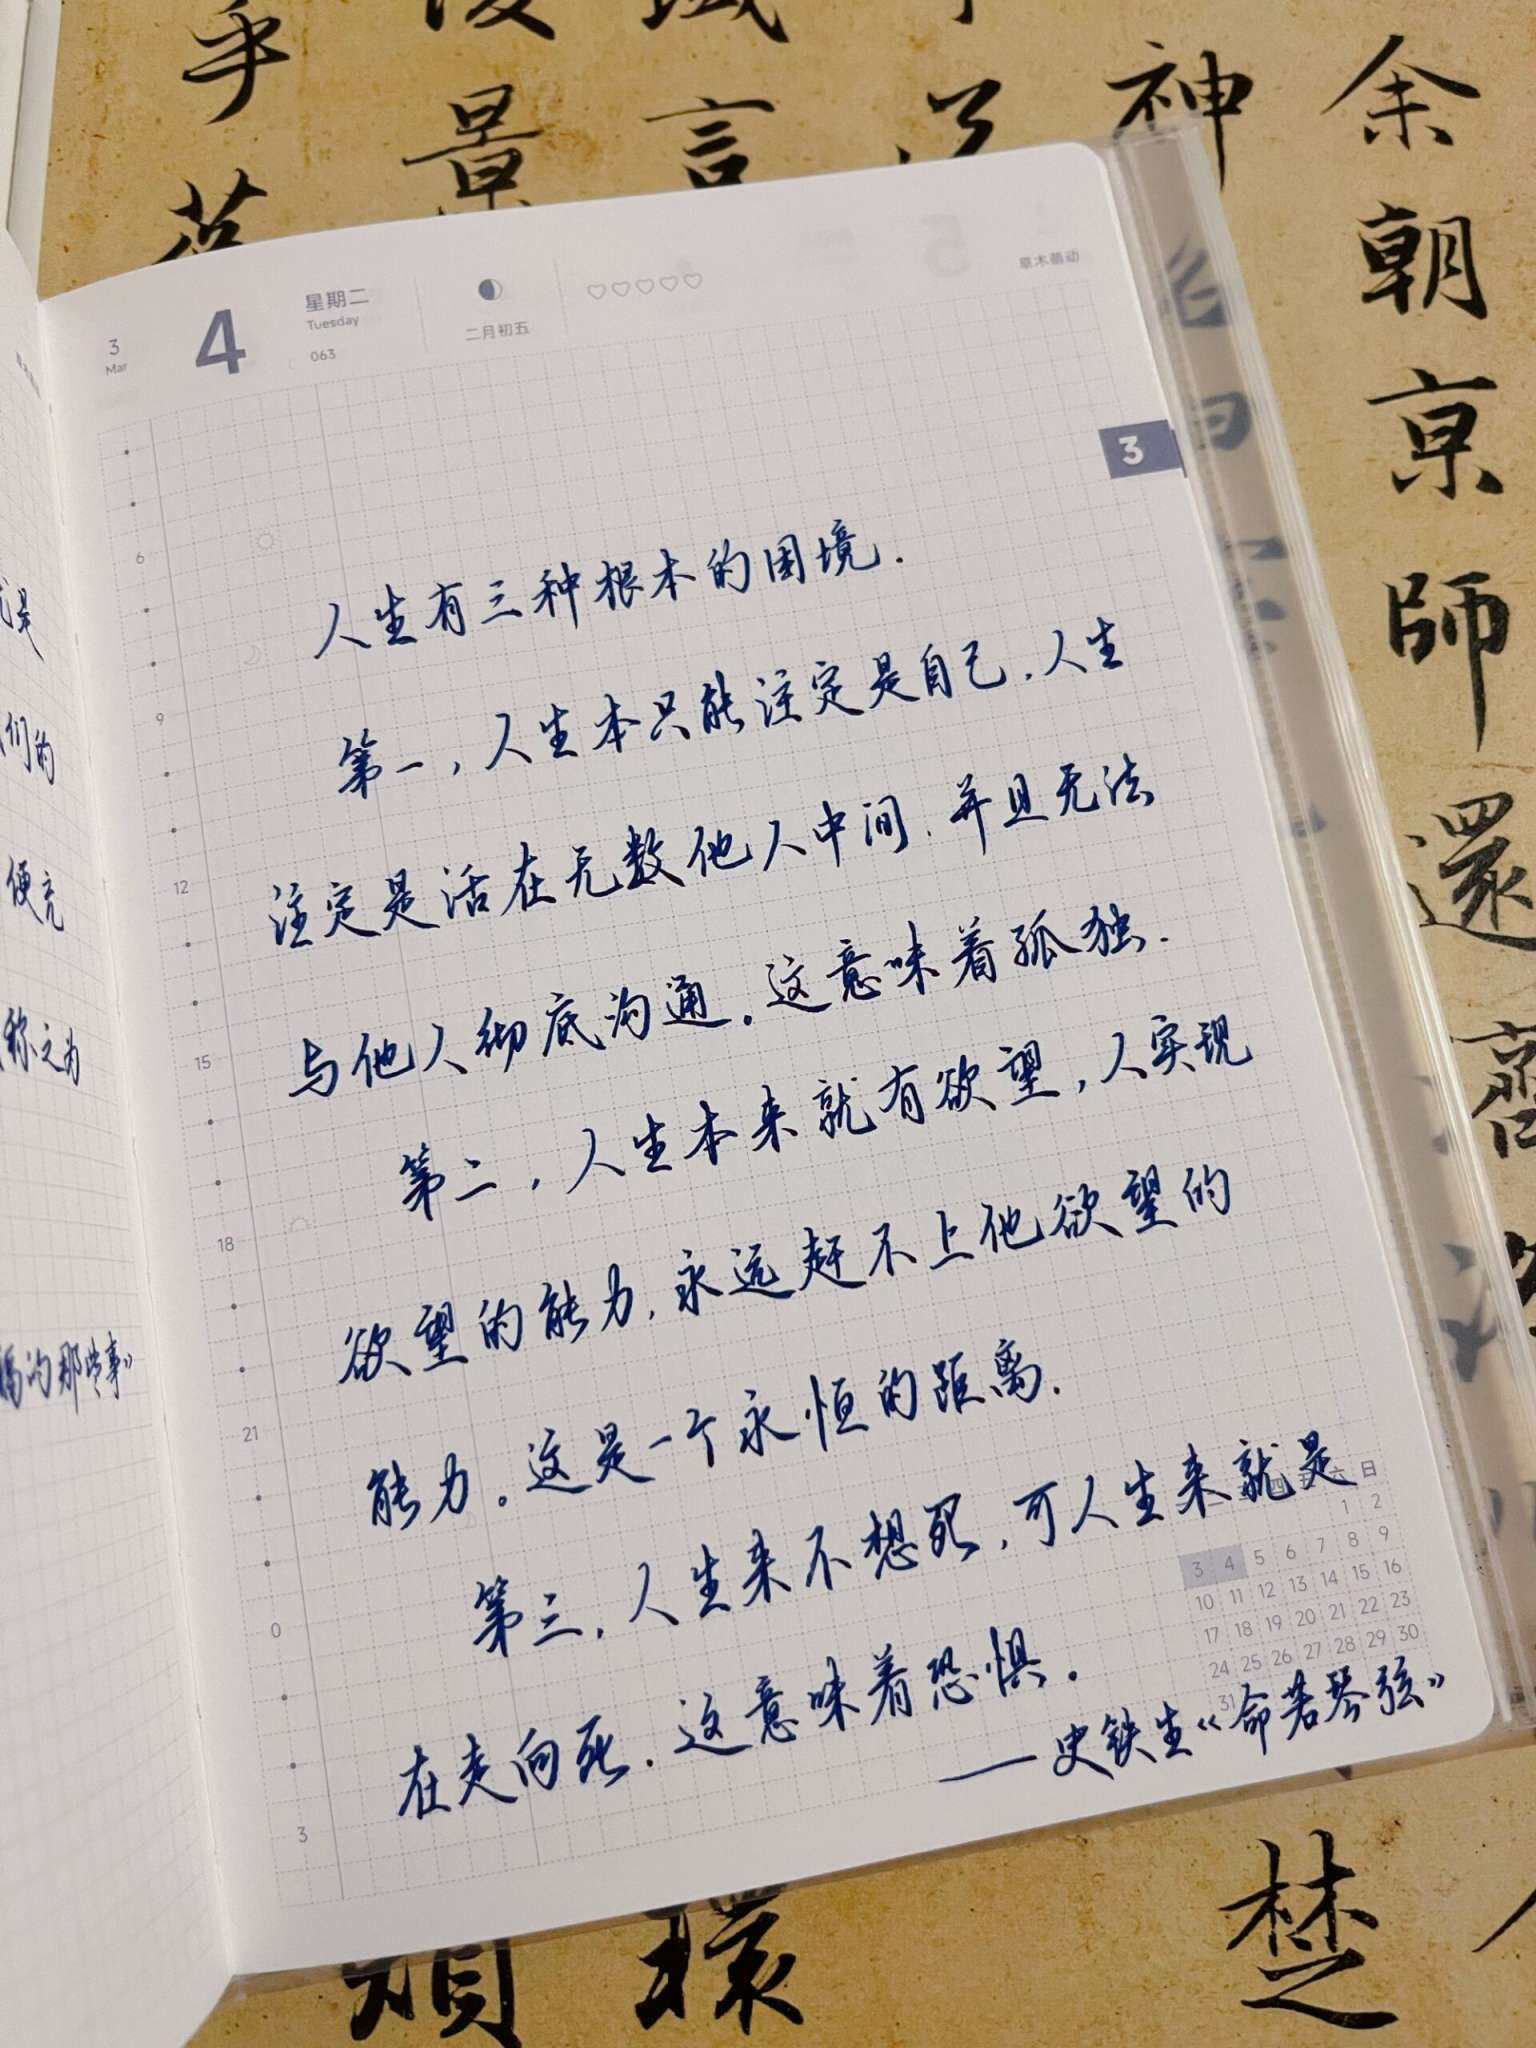 3
Mar
4
星期二
Tuesday
063
二月初五
草木萌动
3
6
9
12
15
18
21
0
3
人生有三种根本的困境.
第一，人生本只能注定是自己.人生
注定是活在无数他人中间.并且无法
与他人彻底沟通。这意味着孤独.
第二，人生本来就有欲望，人实现
欲望的能力.永远赶不上他欲望的
能力。这是一个永恒的距离.
第三.人生来不想死，可人生来就是
在走向死.这意味着恐惧.
——史铁生《命若琴弦》
四 五 六 日
1 2
3 4 5 6 7 8 9
10 11 12 13 14 15 16
17 18 19 20 21 22 23
24 25 26 27 28 29 30
31
们的
便充
称之为
的那些事》
余朝京師還
神
言
景
乎
楚
環